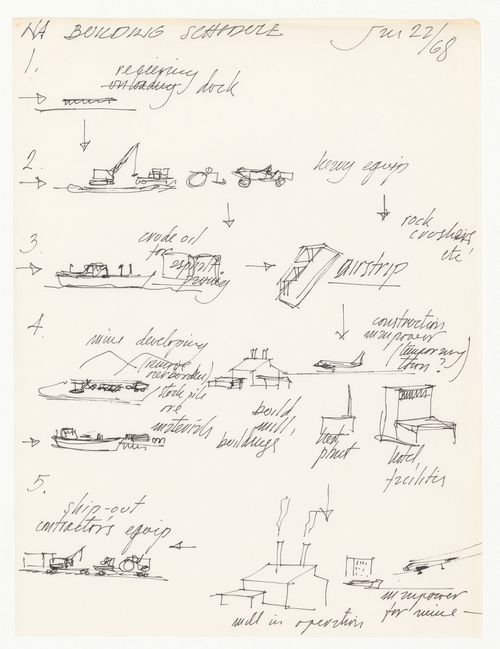 NA BUILDING SCHEDULE Jan 22/68
1.
unloading dock
2.
heavy equip
rock
crushers
etc
3.
crude oil
for
asphalt
paving
airstrip
4.
mine developing
(remove
overburden)
stock pile
ore
materials
build
mill,
buildings
construction
manpower
(temporary
town?)
heat
plant
hotel,
facilities
5.
ship-out
contractor's equip
mill in operation
manpower
for mine —